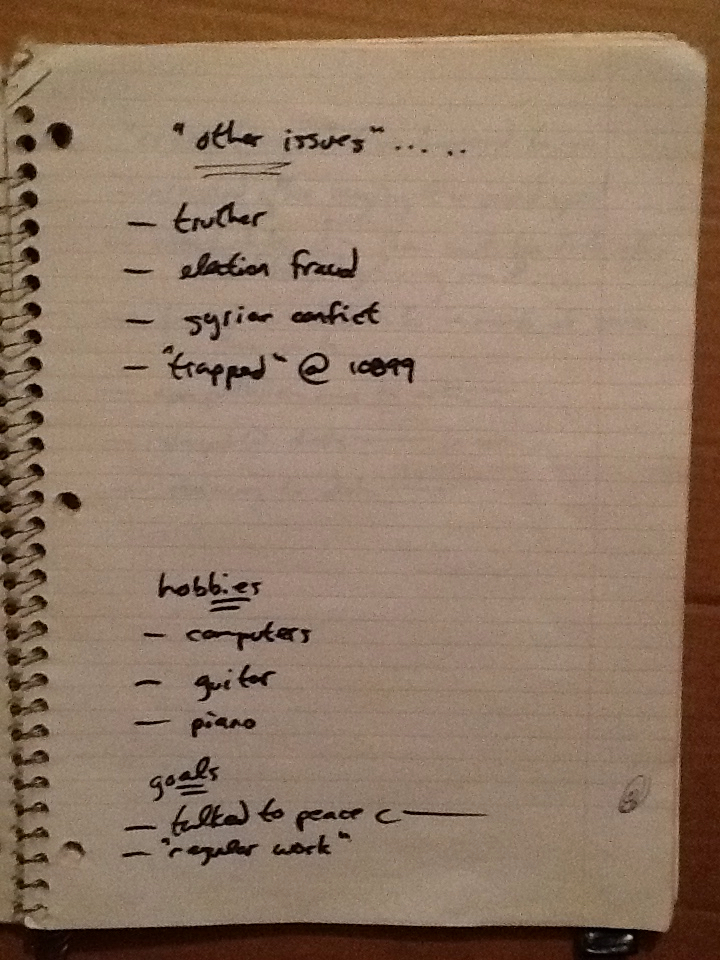 "other issues" ... ..
— truther
— election fraud
— syrian confict
— "trapped" @ 10899
hobbies
— computers
— guitar
— piano
goals
— talked to peace c———
— "regular work"